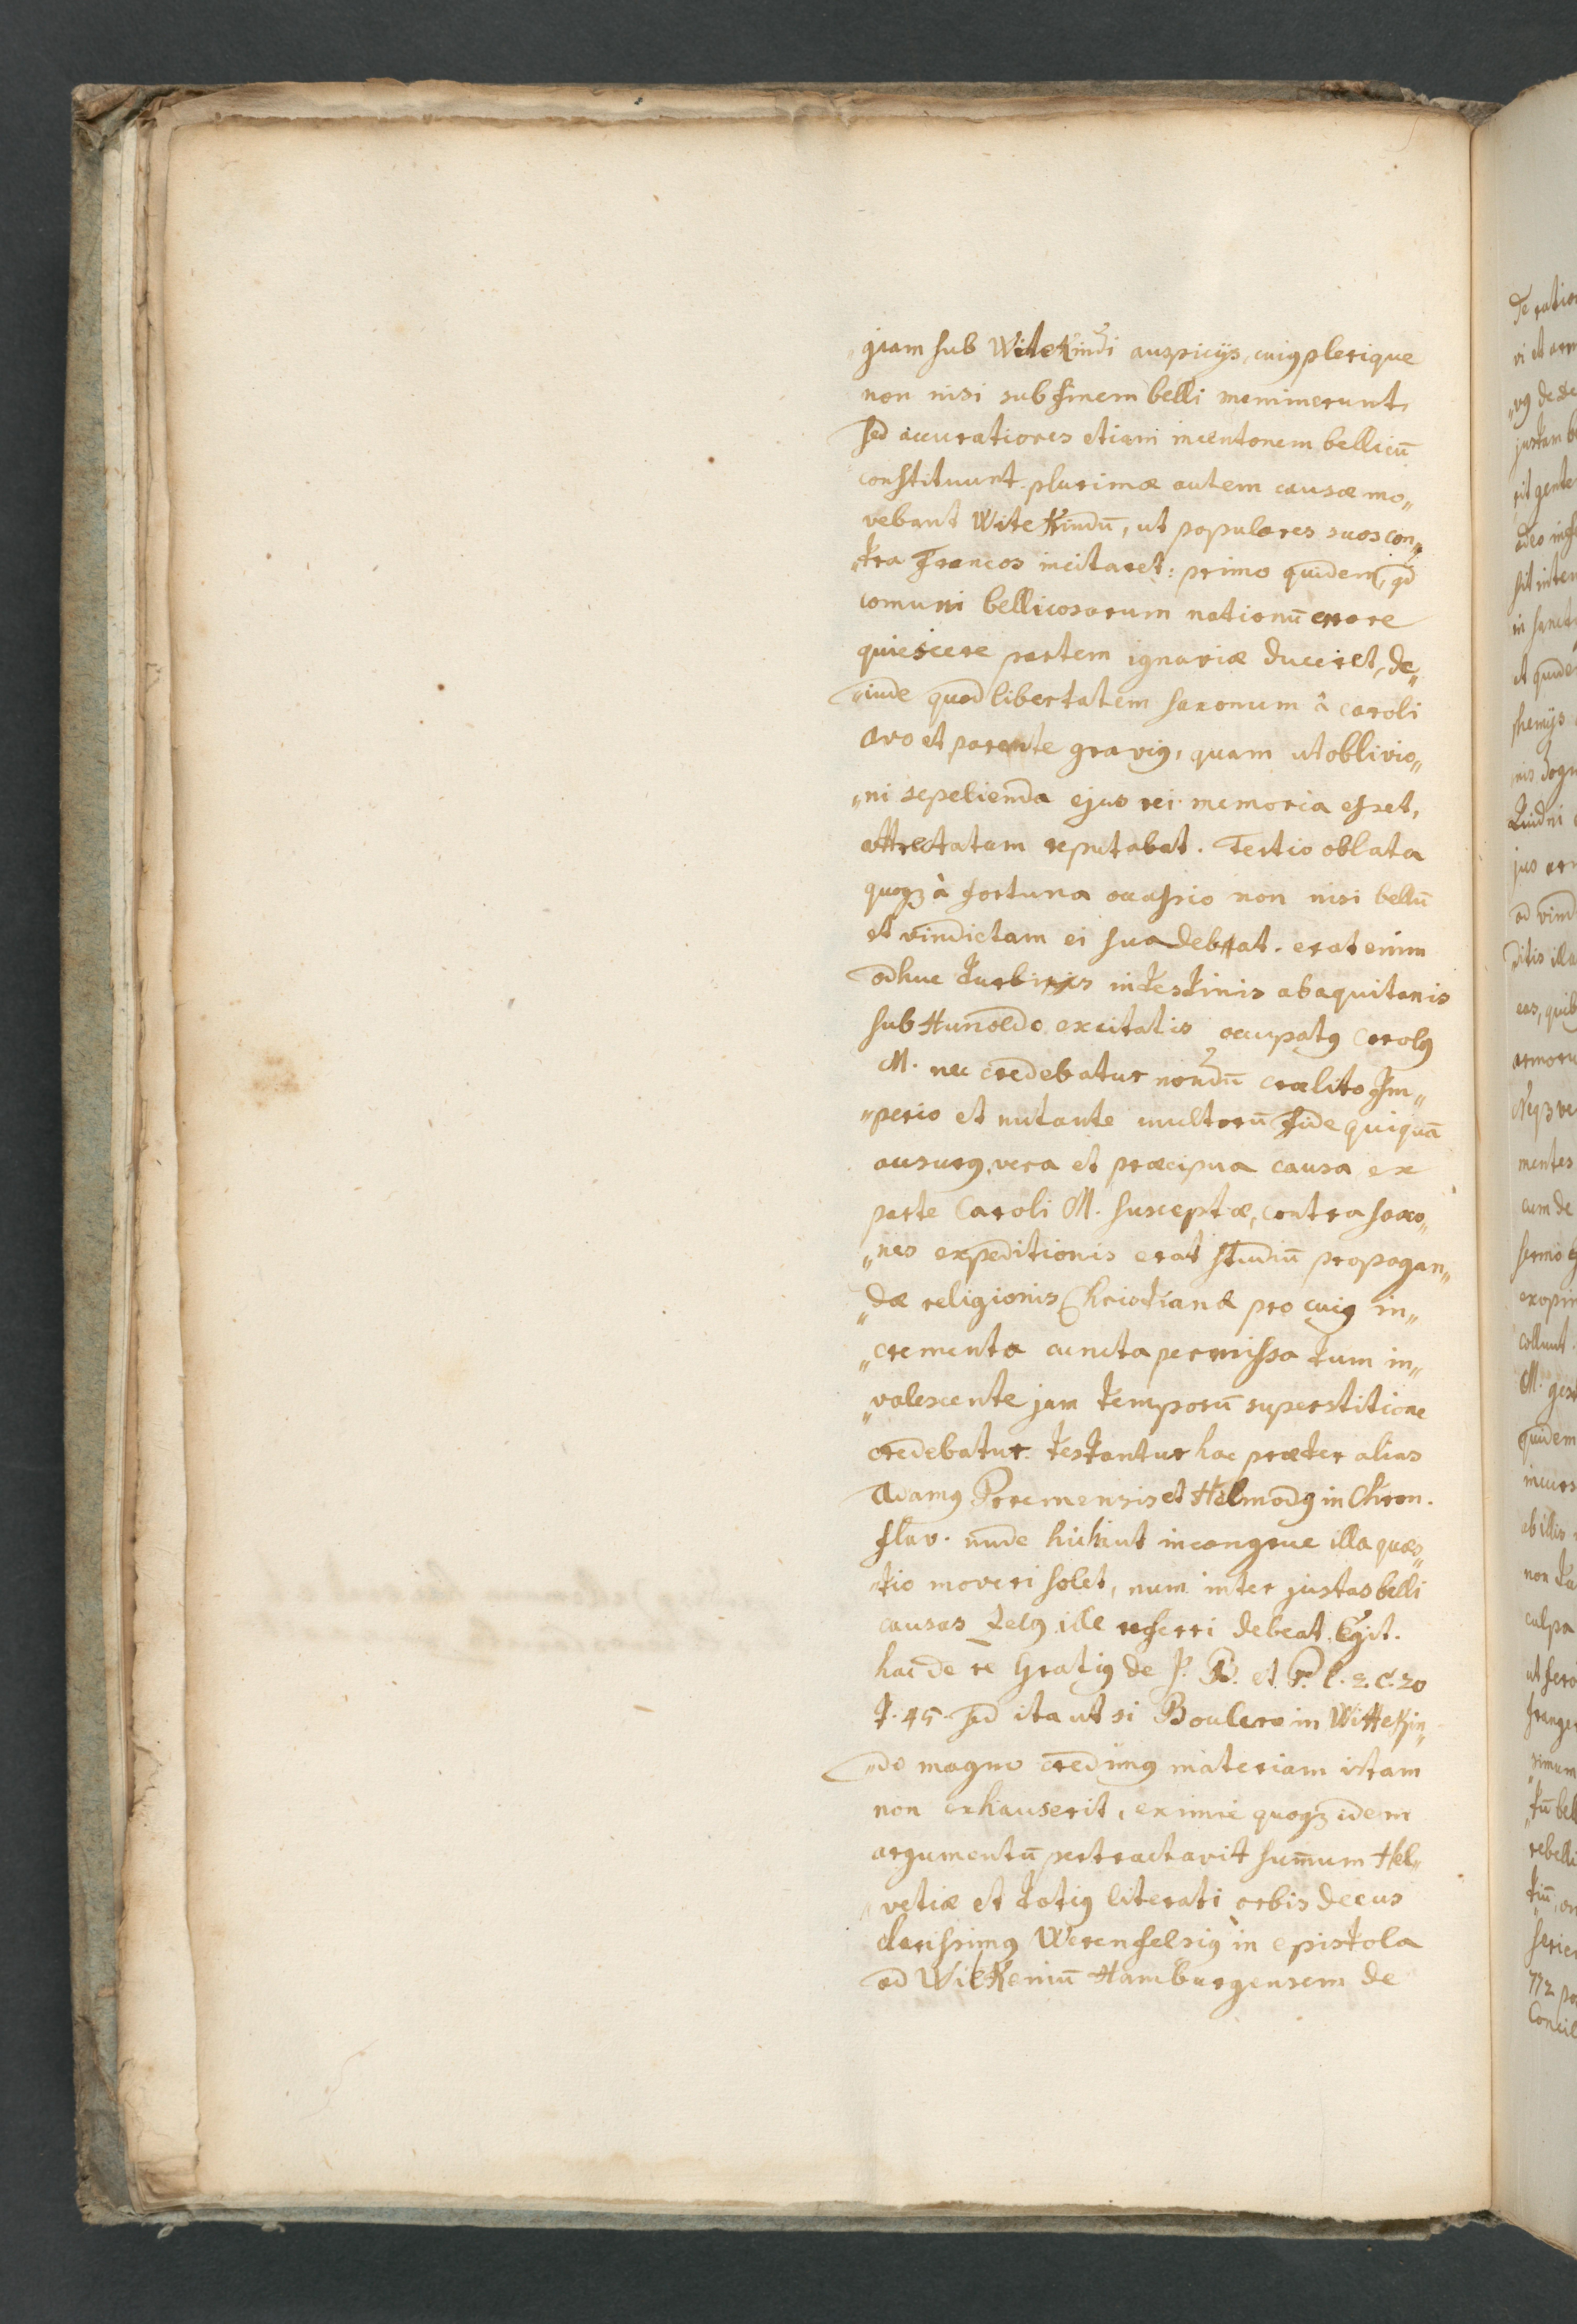 „giam sub Wite Kindi auspicijs, cuiꝰ plerique
non nisi sub finem belli meminerunt,
sed accuratiores etiam incentorem bellicū
constituunt. plurimæ autem causæ mo„
vebant Wite Kindū, ut populares suos con„
„tra Francos incitaret: primo quidem, qd
comuni bellicosarum nationū errore
quiescere partem ignaviæ duceret, de„
„inde quod libertatem saxonum â caroli
avo et parente graviꝰ, quam ut oblivio„
„ni sepelienda ejus rei memoria esset,
attrectatam reputabat. Tertio oblata
quoqꝫ à fortuna occassio non nisi bellū
et vindictam ei suadebat. erat enim
adhuc turbinis intestinis ab aquitanis
sub Hunoldo excitatis occupatꝰ Carolꝰ
M. nec credebatur nondū coalito Im„
„perio et nutante multorū fide quiquā
ausurꝰ, vera et præcipua causa ex
parte Caroli M. susceptæ, contra saxo„
„nes expeditionis erat studiū propagan„
„dæ religionis Christianæ pro cuiꝰ in„
„cremento cuncta permissa tum in„
„valescente jam temporū superstitione
credebatur. testantur hac præter alias
Adamꝰ Bremensis et Helmodꝰ in Chron.
slav. unde hic haut incongrue illa quæs„
„tio moveri solet, num inter justas belli
causas zelꝰ ille referri debeat. Egit.
hac de re Grotiꝰ de J. B. et P. l. 2. C. 20
§. 45. sed ita ut si Boclero in Witte Kin„
„do magno credimꝰ materiam istam
non exhauserit, eximie quoqꝫ idem
argumentū pertractavit summum Hel„
„vetiæ et totiꝰ literati orbis decus
clarissimꝰ Werenfelsiꝰ in epistola
ad WilKeniū Hamburgensem de